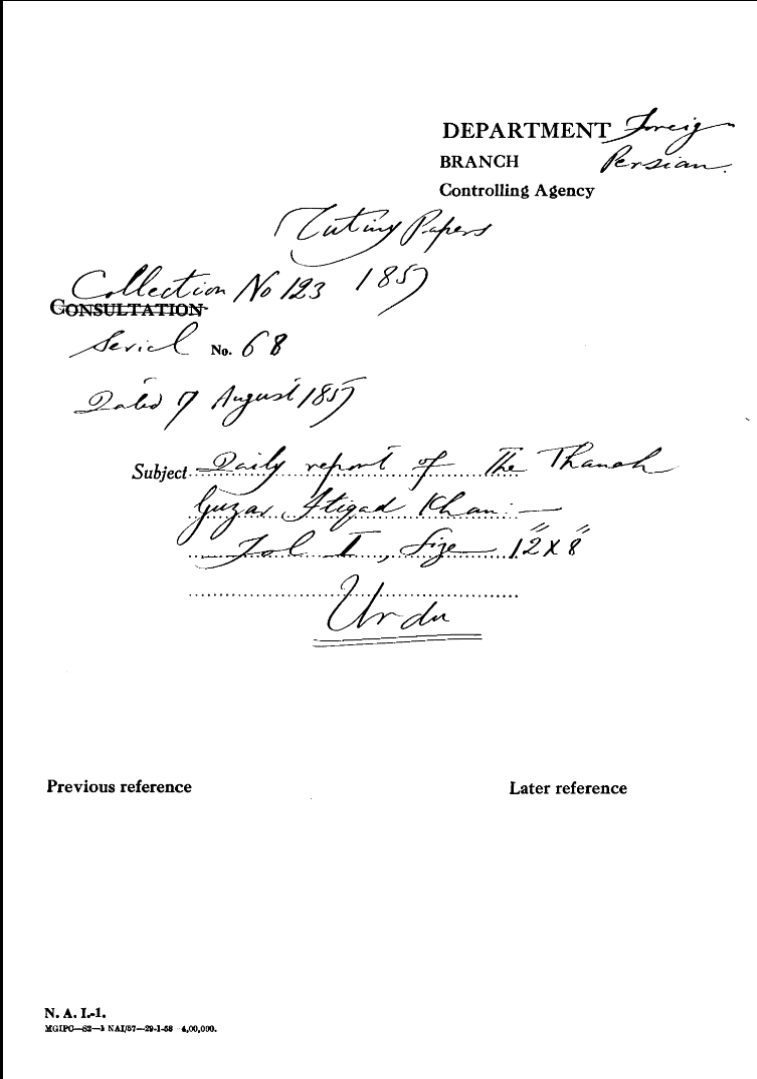 DEPARTMENT Foreign
BRANCH Persian.
Controlling Agency
Mutiny Papers
Collection No 123 1857
CONSULTATION
Serial No. 68
Dated 7 August 1857
Subject Daily report of The Thanah
Guzar Itiqad Khan:—
Fol I, Size 12" x 8"
Urdu
Previous reference Later reference
N. A. I.-1.
MGIPC—S2—3 NAI/57—29-1-58—4,00,000.